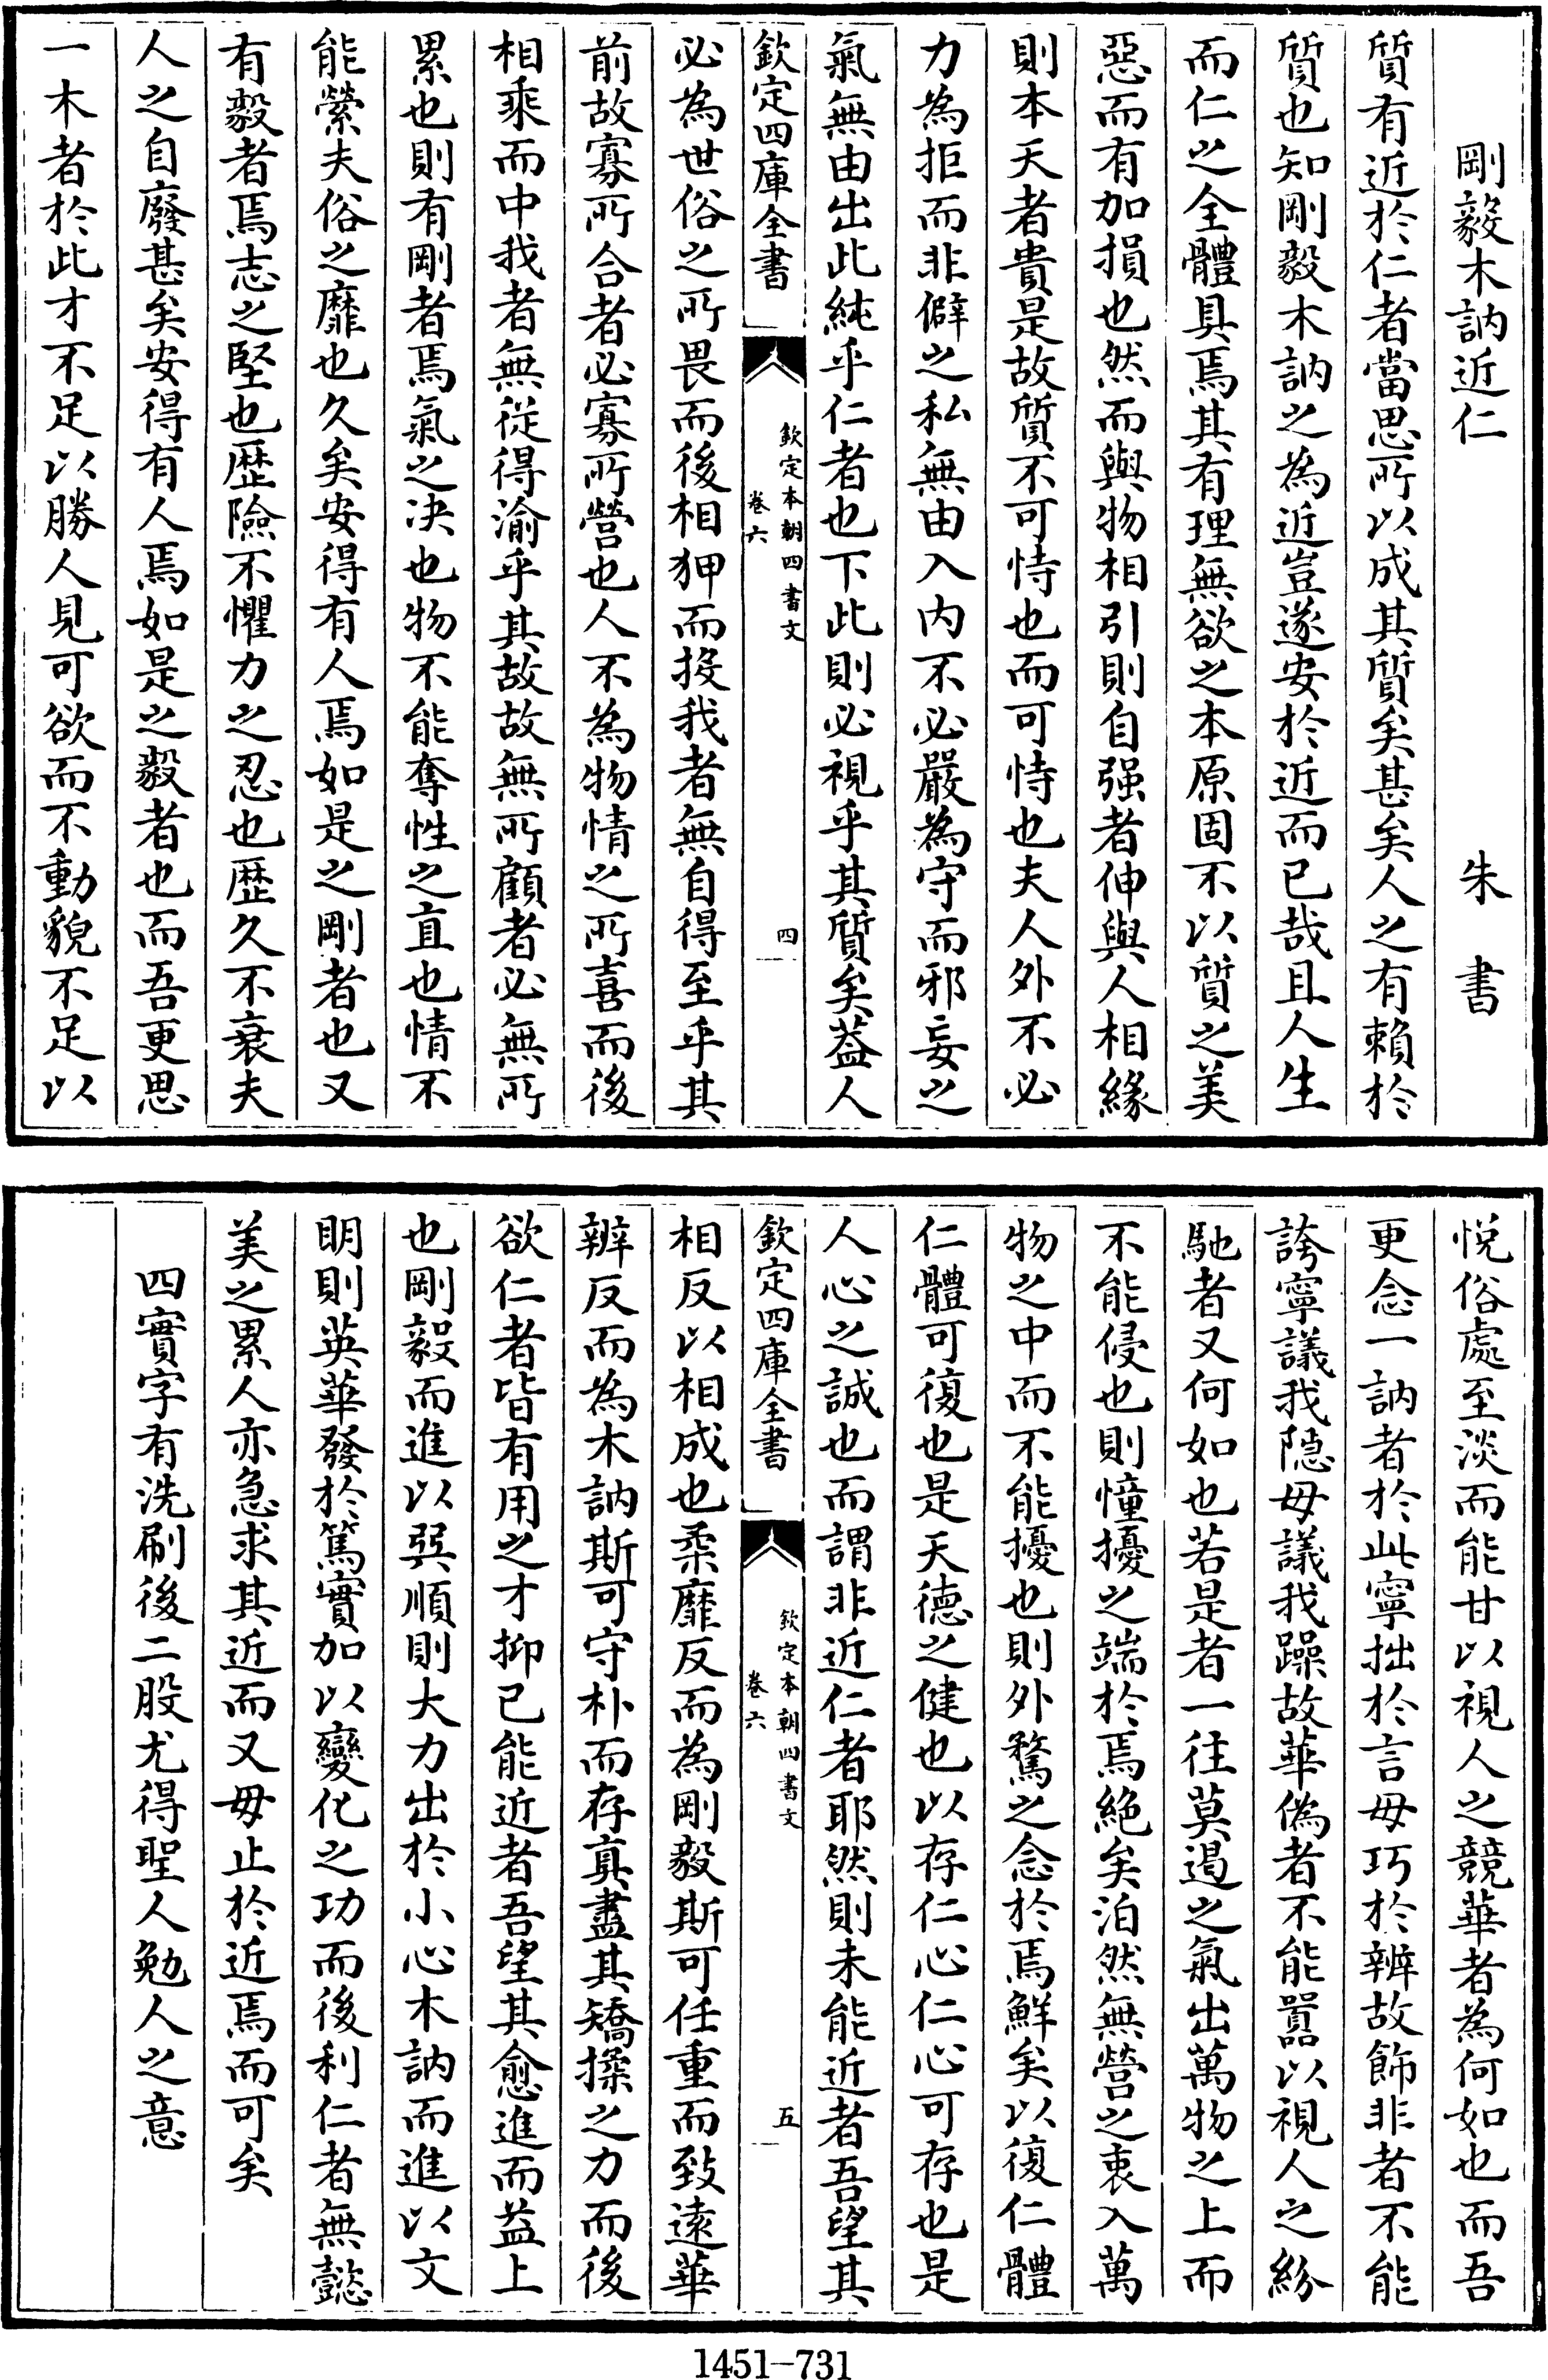 剛毅木訥近仁　朱　書
質有近於仁者當思所以成其質矣甚矣人之有賴於
質也知剛毅木訥之為近豈遂安於近而已哉且人生
而仁之全體具焉其有理無欲之本原固不以質之美
惡而有加損也然而與物相引則自强者伸與人相緣
則本天者貴是故質不可恃也而可恃也夫人外不必
力為拒而非僻之私無由入内不必嚴為守而邪妄之
氣無由出此純乎仁者也下此則必視乎其質矣葢人
欽定四庫全書
欽定本朝四書文
卷六
四
必為世俗之所畏而後相狎而投我者無自得至乎其
前故寡所合者必寡所營也人不為物情之所喜而後
相乘而中我者無從得渝乎其故故無所顧者必無所
累也則有剛者焉氣之决也物不能奪性之直也情不
能縈夫俗之靡也久矣安得有人焉如是之剛者也又
有毅者焉志之堅也歴險不懼力之忍也歴久不衰夫
人之自廢甚矣安得有人焉如是之毅者也而吾更思
一木者於此才不足以勝人見可欲而不動貌不足以
悦俗處至淡而能甘以視人之競華者為何如也而吾
更念一訥者於此寧拙於言毋巧於辨故飾非者不能
誇寧議我隠毋議我躁故華偽者不能囂以視人之紛
馳者又何如也若是者一往莫遏之氣出萬物之上而
不能侵也則憧擾之端於焉絶矣泊然無營之衷入萬
物之中而不能擾也則外騖之念於焉鮮矣以復仁體
仁體可復也是天德之健也以存仁心仁心可存也是
人心之誠也而謂非近仁者耶然則未能近者吾望其
欽定四庫全書
欽定本朝四書文
卷六
五
相反以相成也柔靡反而為剛毅斯可任重而致遠華
辨反而為木訥斯可守朴而存真盡其矯揉之力而後
欲仁者皆有用之才抑已能近者吾望其愈進而益上
也剛毅而進以巽順則大力出於小心木訥而進以文
明則英華發於篤實加以變化之功而後利仁者無懿
美之累人亦急求其近而又毋止於近焉而可矣
四實字有洗刷後二股尤得聖人勉人之意
1451-731